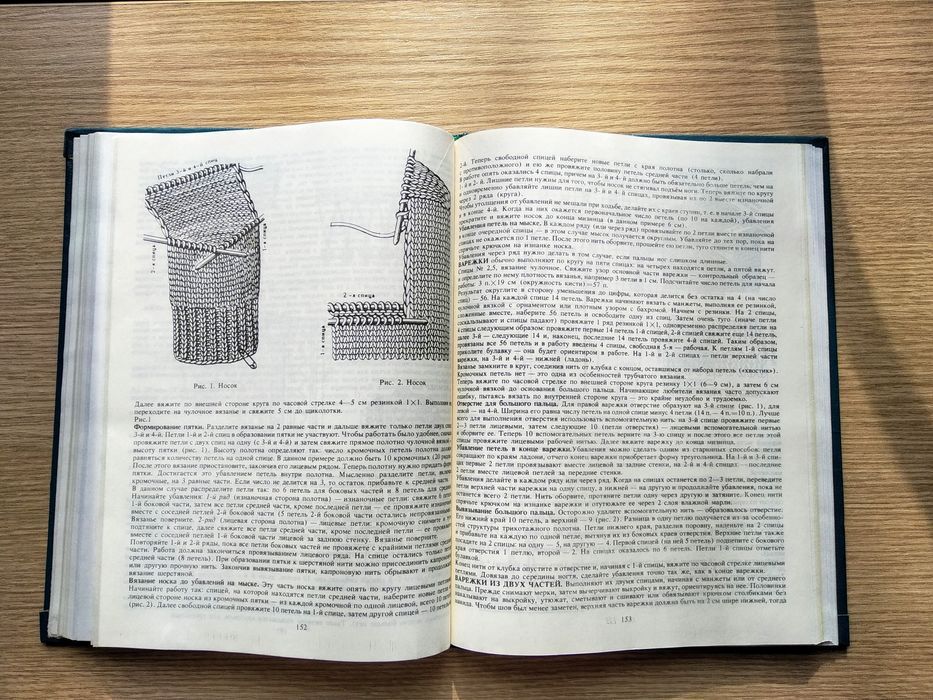 Петли 3-й и 4-й спиц
2-я спица
1-я спица
Рис. 1. Носок
2-я спица
1-я спица
Рис. 2. Носок
Далее вяжите по внешней стороне круга по часовой стрелке 4—5 см резинкой 1×1. Выполнив
переходите на чулочное вязание и свяжите 5 см до щиколотки.
Рис.1
Формирование пятки. Разделите вязанье на 2 равные части и дальше вяжите только петли двух спиц
3-й и 4-й. Петли 1-й и 2-й спиц в образовании пятки не участвуют. Чтобы работать было удобнее,
провяжите петли с двух спиц на одну (с 3-й и 4-й) и затем свяжите прямое полотно чулочной вязки
высоту пятки (рис. 1). Высоту полотна определяют так: число кромочных петель полотна должно
равняться количеству петель на одной спице. В данном примере должно быть 10 кромочных (20 рядов)
После этого вязание приостановите, закончив его лицевым рядом. Теперь полотну нужно придать форму
пятки. Достигается это убавлением петель внутри полотна. Мысленно разделите петли, включая
кромочные, на 3 равные части. Если число не делится на 3, то остаток прибавьте к средней части.
В данном случае распределите петли так: по 6 петель для боковых частей и 8 петель для средней
Начинайте убавления: 1-й ряд (изнаночная сторона полотна) — изнаночные петли: свяжите 6 петель
1-й боковой части, затем все петли средней части, кроме последней петли — ее провяжите изнаночной
вместе с соседней петлей 2-й боковой части (5 петель 2-й боковой части остались непровязанными)
Вязанье поверните. 2-ряд (лицевая сторона полотна) — лицевые петли: кромочную снимите и
подтяните к спице, далее свяжите все петли средней части, кроме последней петли — ее провяжите
вместе с соседней петлей 1-й боковой части лицевой за заднюю стенку. Вязанье поверните.
Повторяйте 1-й и 2-й ряды, пока все петли боковых частей не провяжете с крайними петлями средней
части. Работа должна закончиться провязыванием лицевого ряда. На спице остались только петли
средней части (8 петель). При образовании пятки к шерстяной нити можно присоединить капроновую
или другую прочную нить. Закончив вывязывание пятки, капроновую нить обрывают и продолжают
вязание шерстяной.
Вязание носка до убавлений на мыске. Эту часть носка вяжите опять по кругу лицевыми петлями
Начинайте работу так: спицей, на которой находятся петли средней части, наберите новые петли с
лицевой стороне носка из кромочных петель — из каждой кромочной по одной лицевой, всего 10 петель
(рис. 2). Далее свободной спицей провяжите 10 петель на 1-й спице, затем другой спицей — 10 петель
152
2-й. Теперь свободной спицей наберите новые петли с края полотна (столько, сколько набрали
с противоположного) и ею же провяжите половину петель средней части (4 петли).
В работе опять оказались 4 спицы, причем на 3-й и 4-й должно быть обязательно больше петель, чем на
1-й и 2-й. Лишние петли нужны для того, чтобы носок не стягивал подъем ноги. Теперь вяжите по кругу
и одновременно убавляйте лишни петли на 3-й и 4-й спицах, провязывая их по 2 вместе изнаночной
через 2 ряда (круга).
Чтобы утолщения от убавлений не мешали при ходьбе, делайте их с края ступни, т. е. в начале 3-й спицы
и в конце 4-й. Когда на них окажется первоначальное число петель (по 10 на каждой), убавления
прекратите и вяжите носок до конца мизинца (в данном примере 6 см).
Убавления петель на мыске. В каждом ряду (или через ряд) провязывайте по 2 петли вместе изнаночной
в конце очередной спицы — в этом случае мысок получается округлым. Убавляйте до тех пор, пока на
спицах не окажется по 1 петле. После этого нить оборвите, прошейте ею петли, туго стяните и конец нити
спрячьте крючком на изнанке носка.
Убавления через ряд нужно делать в том случае, если пальцы ног слишком длинные.
ВАРЕЖКИ обычно выполняют по кругу на пяти спицах: на четырех находятся петли, а пятой вяжут.
Спицы № 2,5, вязание чулочное. Свяжите узор основной части варежки — контрольный образец —
и определите по нему плотность вязанья, например 3 петли в 1 см. Подсчитайте число петель для начала
работы: 3 п.×19 см (окружность кисти)=57 п.
Результат округлите в сторону уменьшения до цифры, которая делится без остатка на 4 (на число
спиц) — 56. На каждой спице 14 петель. Варежки начинают вязать с манжеты, выполняя ее резинкой,
чулочной вязкой с орнаментом или плотным узором с бахромой. Начнем с резинки. На 2 спицы,
сложенные вместе, наберите 56 петель и освободите одну из спиц. Затем очень туго (иначе петли
соскальзывают и спицы падают) провяжите 1 ряд резинкой 1×1, одновременно распределяя петли на
4 спицы следующим образом: провяжите первые 14 петель 1-й спицей, 2-й спицей свяжите еще 14 петель,
далее 3-й — следующие 14 и, наконец, последние 14 петель провяжите 4-й спицей. Таким образом,
провязаны все 56 петель и в работу введены 4 спицы, свободная 5-я — рабочая. К петлям 1-й спицы
приколите булавку — она будет ориентиром в работе. На 1-й и 2-й спицах — петли верхней части
варежки, на 3-й и 4-й — нижней (ладонь).
Вязанье замкните в круг, соединив нить от клубка с концом, оставшимся от набора петель («хвостик»).
Кромочных петель нет — это одна из особенностей трубчатого вязания.
Теперь вяжите по часовой стрелке по внешней стороне круга резинку 1×1 (6—9 см), а затем 6 см
чулочной вязкой до основания большого пальца. Начинающие любители вязания часто допускают
ошибку, пытаясь вязать по внутренней стороне круга — это крайне неудобно и трудоемко.
Отверстие для большого пальца. Для правой варежки отверстие образуют на 3-й спице (рис. 1), для
левой — на 4-й. Ширина его равна числу петель на одной спице минус 4 петли (14 п.— 4 п.=10 п.). Лучше
всего для выполнения отверстия использовать вспомогательную нить: на 3-й спице провяжите первые
2—3 петли лицевыми, затем следующие 10 (петли отверстия) — лицевыми вспомогательной нитью
и оборвите ее. Теперь 10 вспомогательных петель верните на 3-ю спицу и после этого все петли этой
спицы провяжите лицевыми рабочей нитью. Далее вяжите варежку до конца мизинца.
Убавление петель в конце варежки. Убавления можно сделать одним из старинных способов: петли
сокращают по краям ладони, отчего конец варежки приобретает форму треугольника. На 1-й и 3-й спи-
цах первые 2 петли провязывают вместе лицевой за задние стенки, на 2-й и 4-й спицах — последние
2 петли вместе лицевой петлей за передние стенки.
Убавления делайте в каждом ряду или через ряд. Когда на спицах останется по 2—3 петли, переведите
петли верхней части варежки на одну спицу, а нижней — на другую и продолжайте убавления, пока не
останется всего 2 петли. Нить оборвите, протяните петли одну через другую и затяните. Конец нити
спрячьте крючком на изнанке варежки и отутюжьте ее через 2 слоя влажной марли.
Вывязывание большого пальца. Осторожно удалите вспомогательную нить — образовалось отверстие.
Его нижний край 10 петель, а верхний — 9 (рис. 2). Разница в одну петлю получается из-за особенно-
стей структуры трикотажного полотна. Петли нижнего края, разделив поровну, наденьте на 2 спицы
и прибавьте на каждую по одной петле, вытянув их из боковых краев отверстия. Верхние петли также
посадите на 2 спицы: на одну — 5, на другую — 4. Первой спицей (на ней 5 петель) подцепите с бокового
края отверстия 1 петлю, второй — 2. На спицах оказалось по 6 петель. Петли 1-й спицы отметьте
булавкой.
Конец нити от клубка опустите в отверстие и, начиная с 1-й спицы, вяжите по часовой стрелке лицевыми
петлями. Довязав до середины ногтя, сделайте убавления точно так же, как в конце варежки.
ВАРЕЖКИ ИЗ ДВУХ ЧАСТЕЙ. Выполняют их на двух спицах, начиная с манжеты или от среднего
пальца. Прежде снимают мерки, затем вычерчивают выкройку и вяжут, ориентируясь на нее. Половинки
накалывают на выкройку, утюжат, сметывают и сшивают или обвязывают крючком столбиками без
накида. Чтобы шов был менее заметен, верхняя часть варежки должна быть на 2 см шире нижней, тогда
153